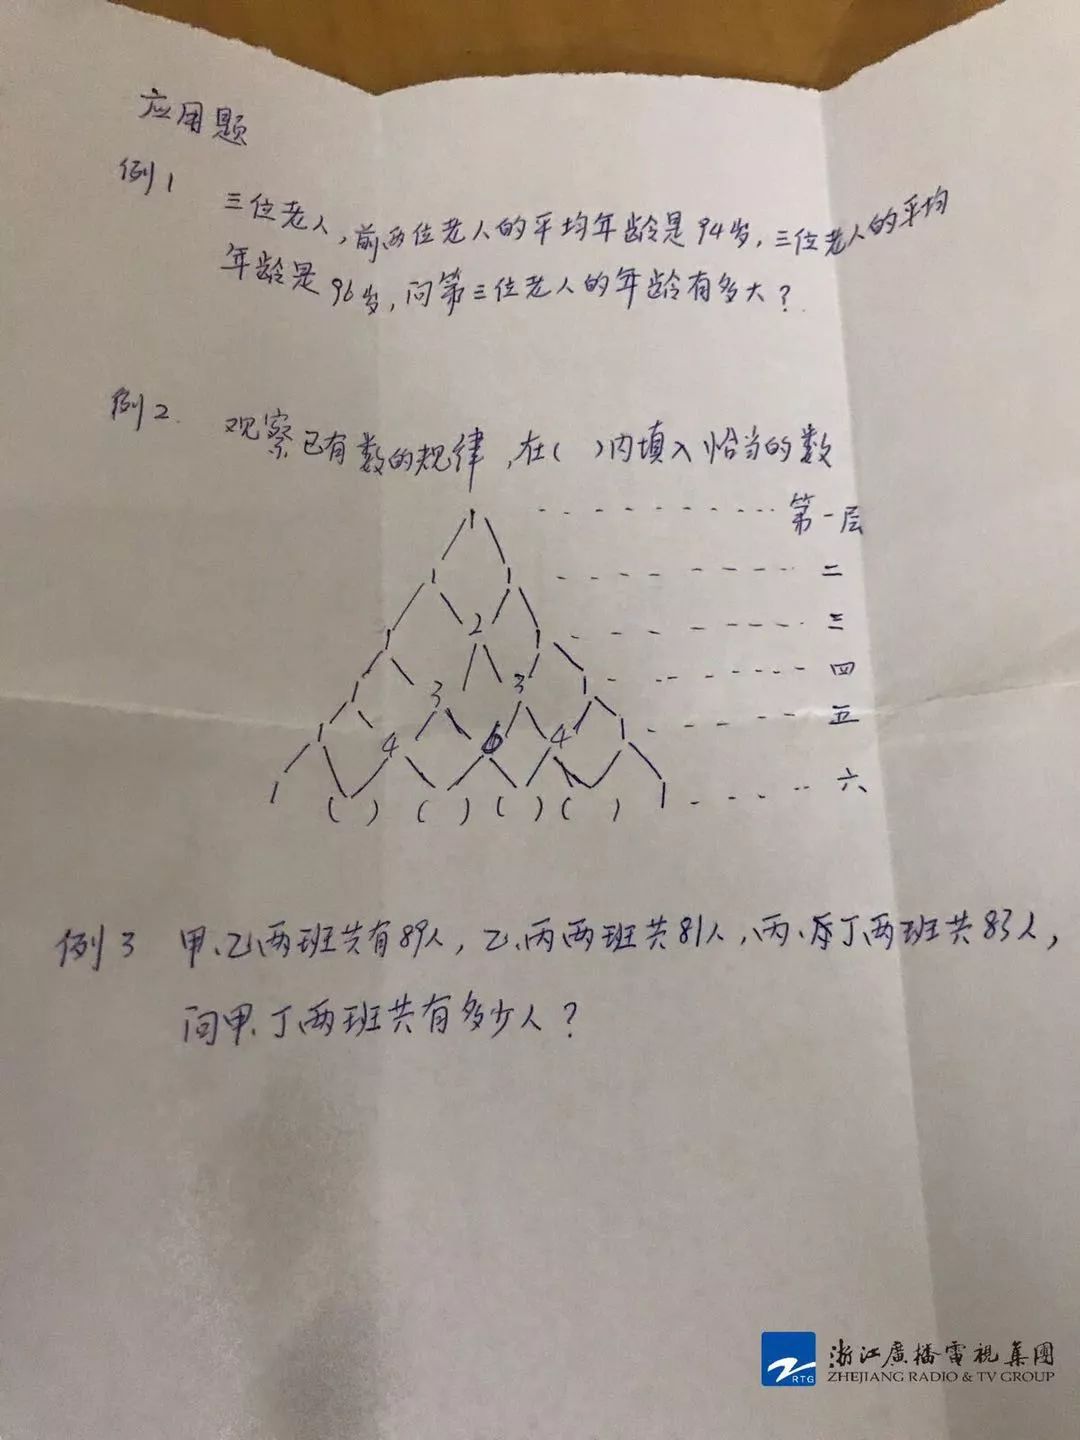 应用题
例1
三位老人,前两位老人的平均年龄是94岁,三位老人的平均
年龄是96岁,问第三位老人的年龄有多大?
例2.
观察已有数的规律,在( )内填入恰当的数
1 - - - - - - - - - - 第一层
1 1 - - - - - - - - - 二
1 2 1 - - - - - - - - 三
1 3 3 1 - - - - - - - 四
1 4 6 4 1 - - - - - - 五
1 ( ) ( ) ( ) ( ) 1 - - - - - 六
例3 甲、乙两班共有89人,乙、丙两班共81人,丙、丁两班共83人,
问甲、丁两班共有多少人?
浙江廣播電視集團
RTG ZHEJIANG RADIO & TV GROUP